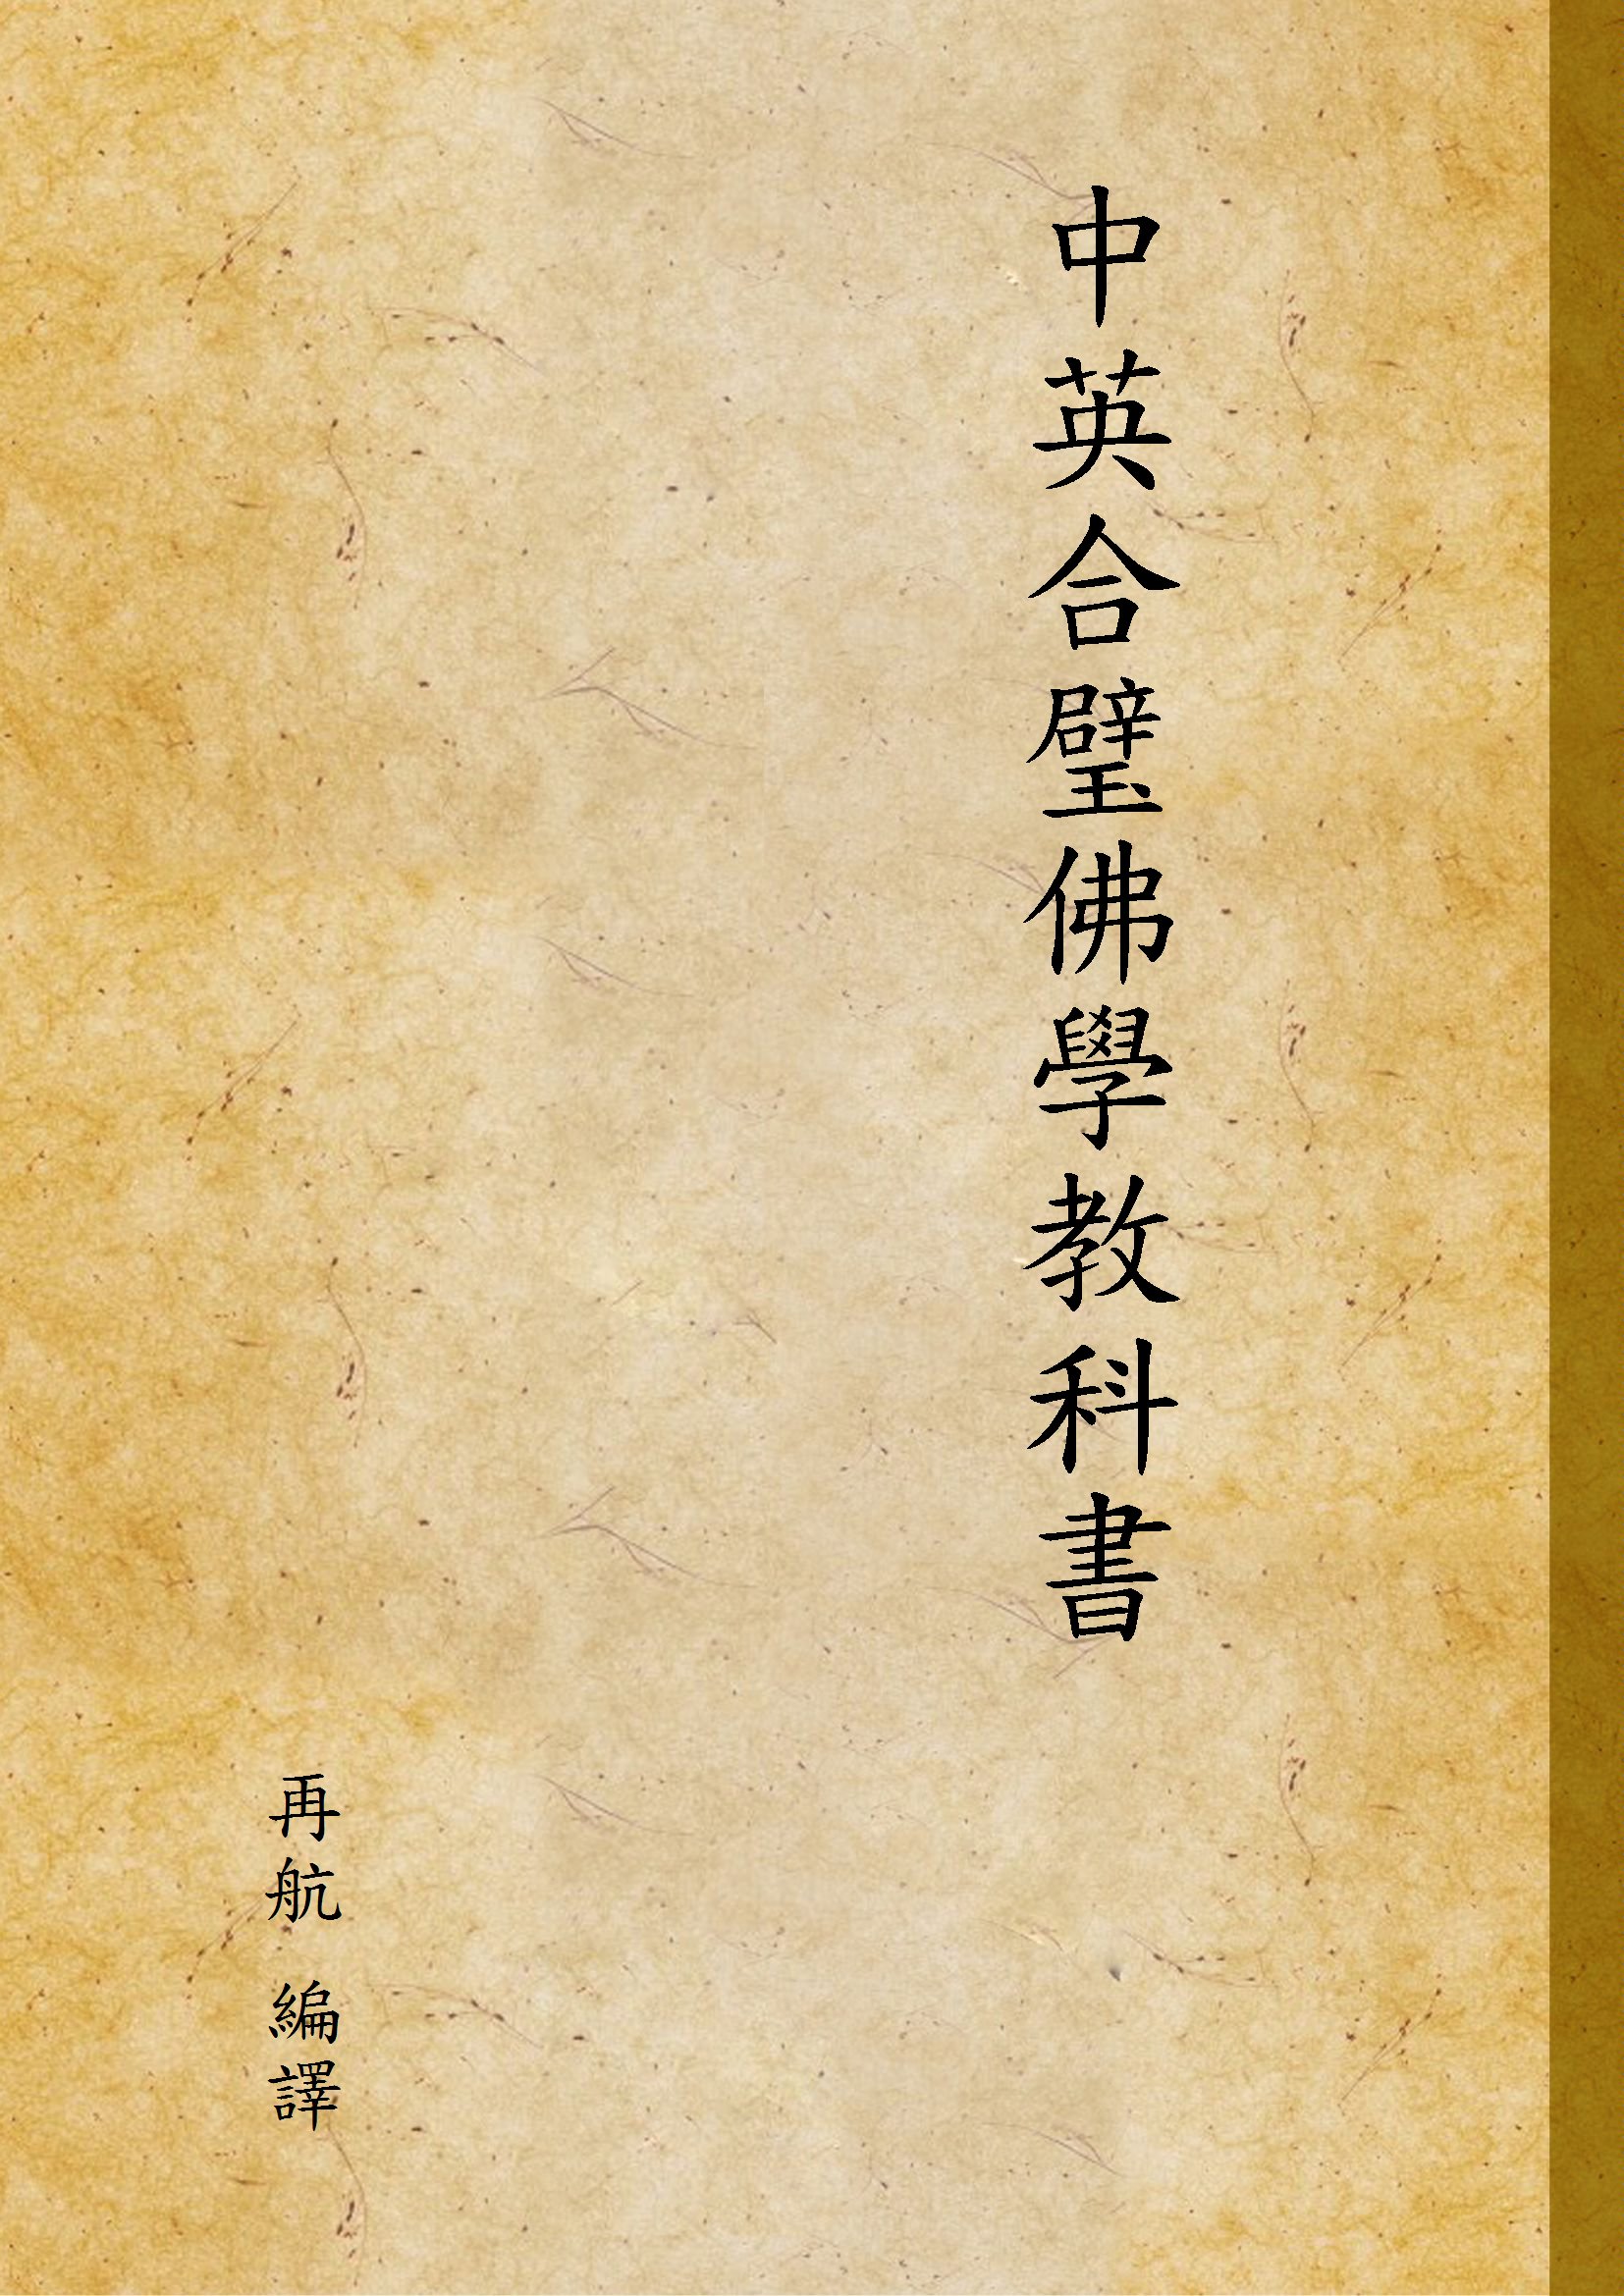 中英合璧佛學教科書
再航 編譯